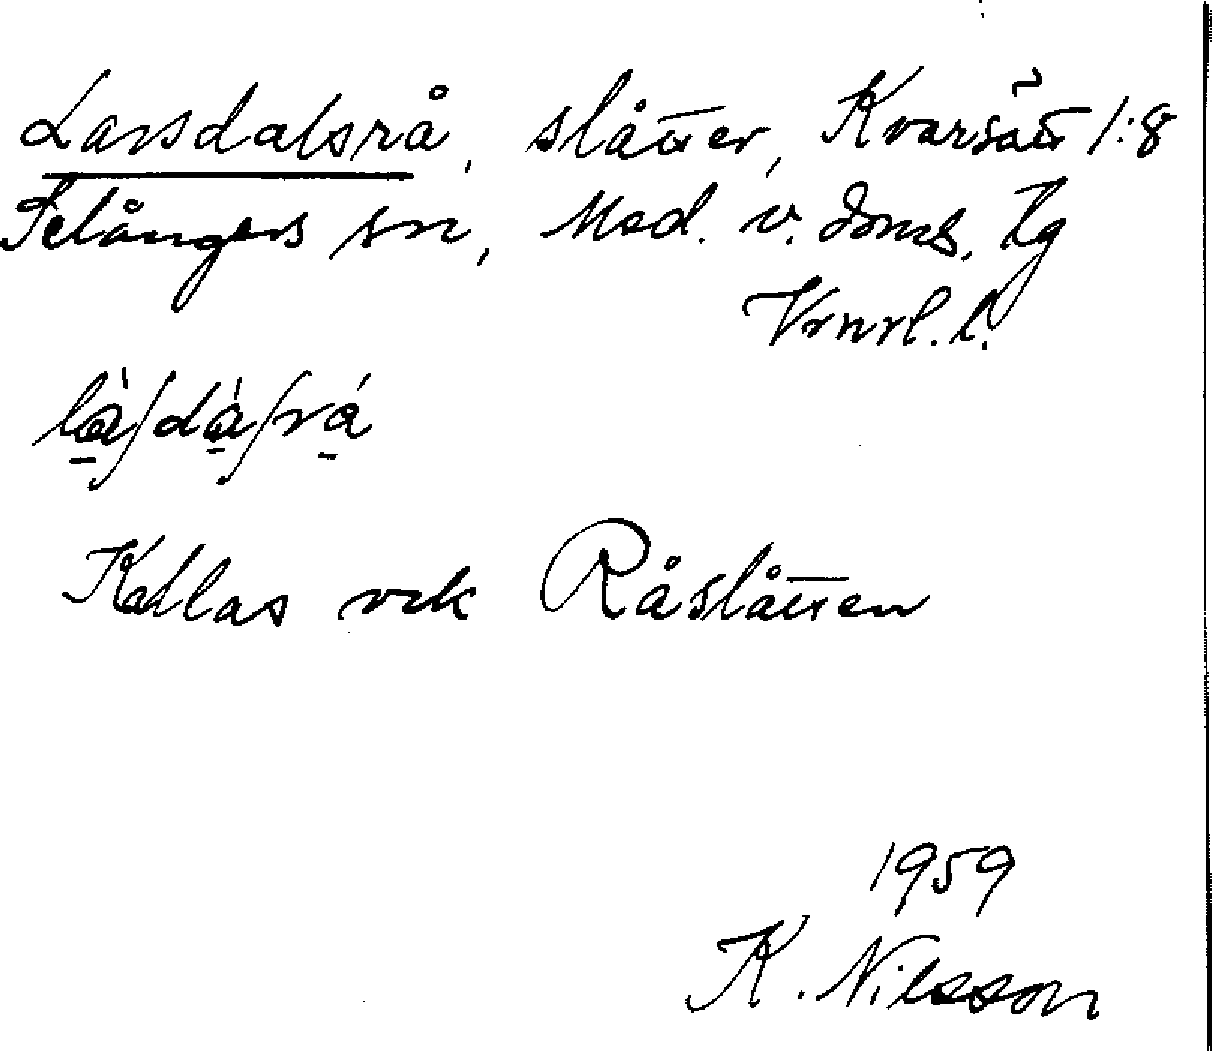 Larsdalsrå, slåtter, Kvarsätt 1:8
Selångers sn, Med. v. doms. Lg
Vrnrl. l.
Kallas ock Råslåtten
1959
K. Nilsson